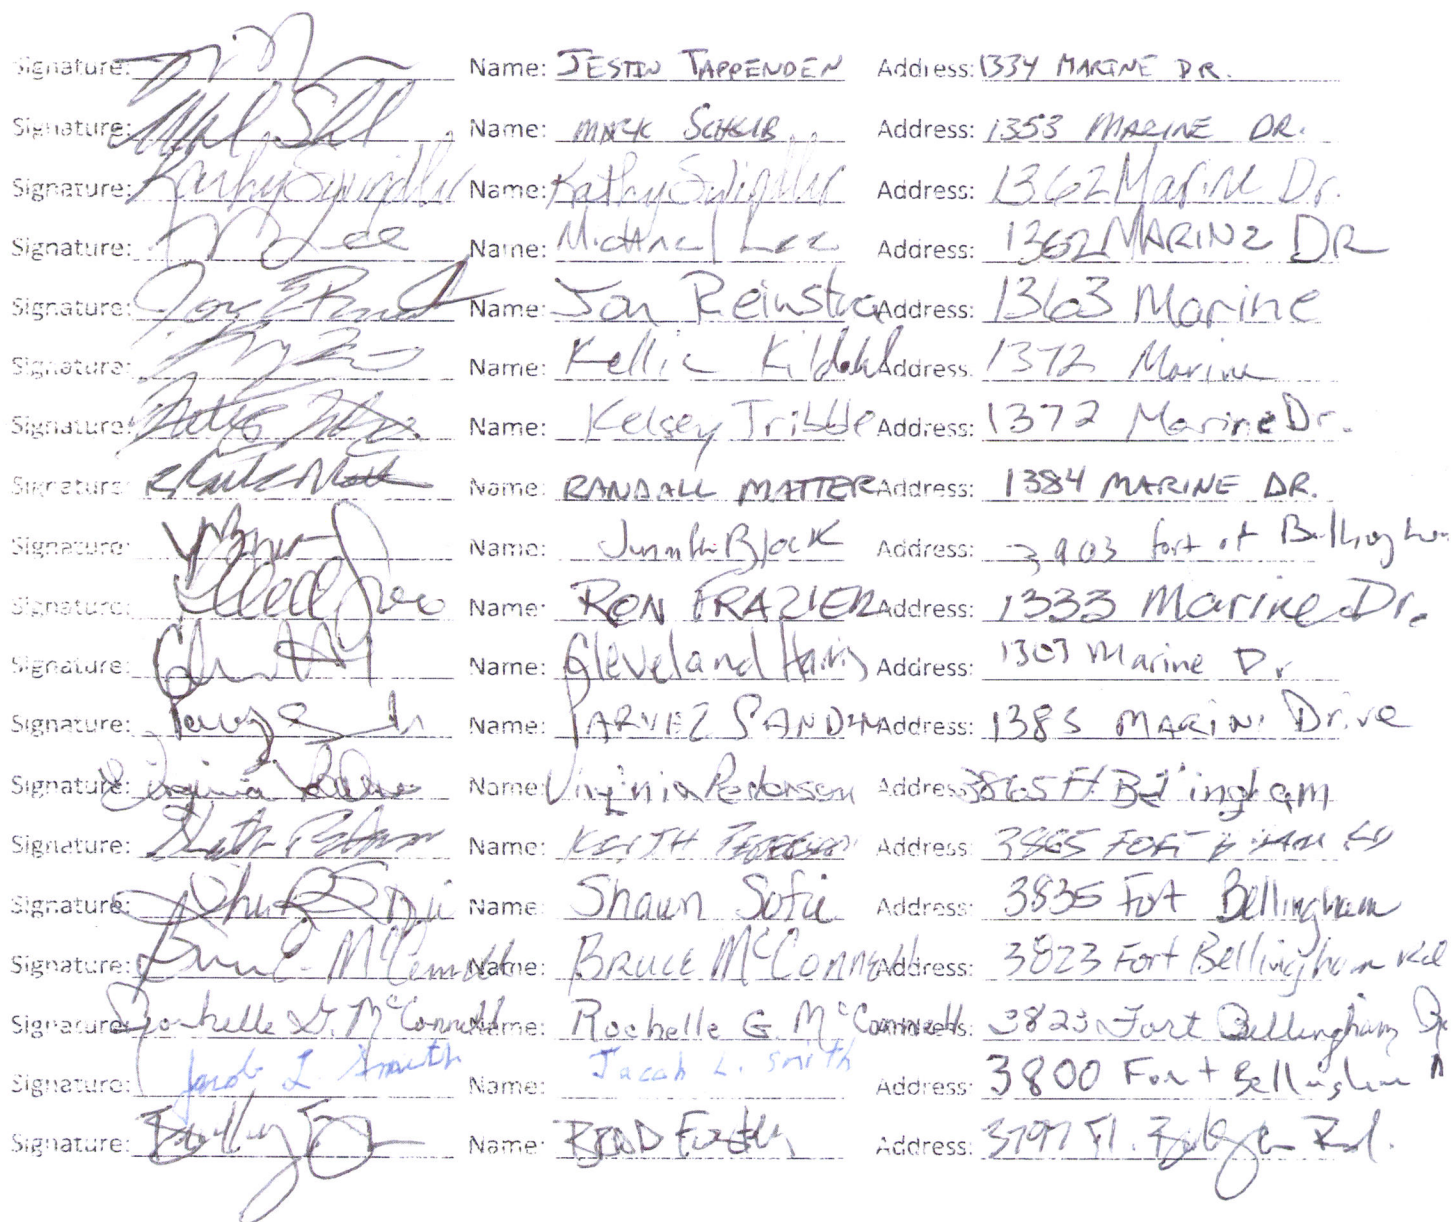 Signature: Name: JESTIN TAPPENDEN Address: 1334 MARINE DR.
Signature: Name: MARK SCHEIB Address: 1353 MARINE DR.
Signature: Kathy Swindler Name: Kathy Swindler Address: 1362 Marine Dr.
Signature: Lee Name: Michael Lee Address: 1362 MARINE DR
Signature: Name: Jon Reinstra Address: 1363 Marine
Signature: Name: Kellie Kildahl Address: 1372 Marine
Signature: Name: Kelsey Tribble Address: 1372 Marine Dr.
Signature: Name: RANDALL MATTER Address: 1384 MARINE DR.
Signature: Name: Black Address: 3903 fort of
Signature: Name: RON FRAZIER Address: 1333 Marine Dr.
Signature: Name: Cleveland Harris Address: 1303 Marine Dr
Signature: Name: PARVEZ Address: 1383 Drive
Signature: Virginia Name: Virginia Pedersen Address: 3865 Ft Bellingham
Signature: Name: KEITH Address: 3865 FORT
Signature: Name: Shaun Sofie Address: 3835 Fort Bellingham
Signature: McConnell Name: BRUCE McCONNELL Address: 3823 Fort Bellingham Rd
Signature: Rochelle G. McConnell Name: Rochelle G. McConnell Address: 3823 Fort Bellingham
Signature: Jacob L. Smith Name: Jacob L. Smith Address: 3800 Fort Bellingham
Signature: Name: BRAD Address: 3797 Ft. Rd.